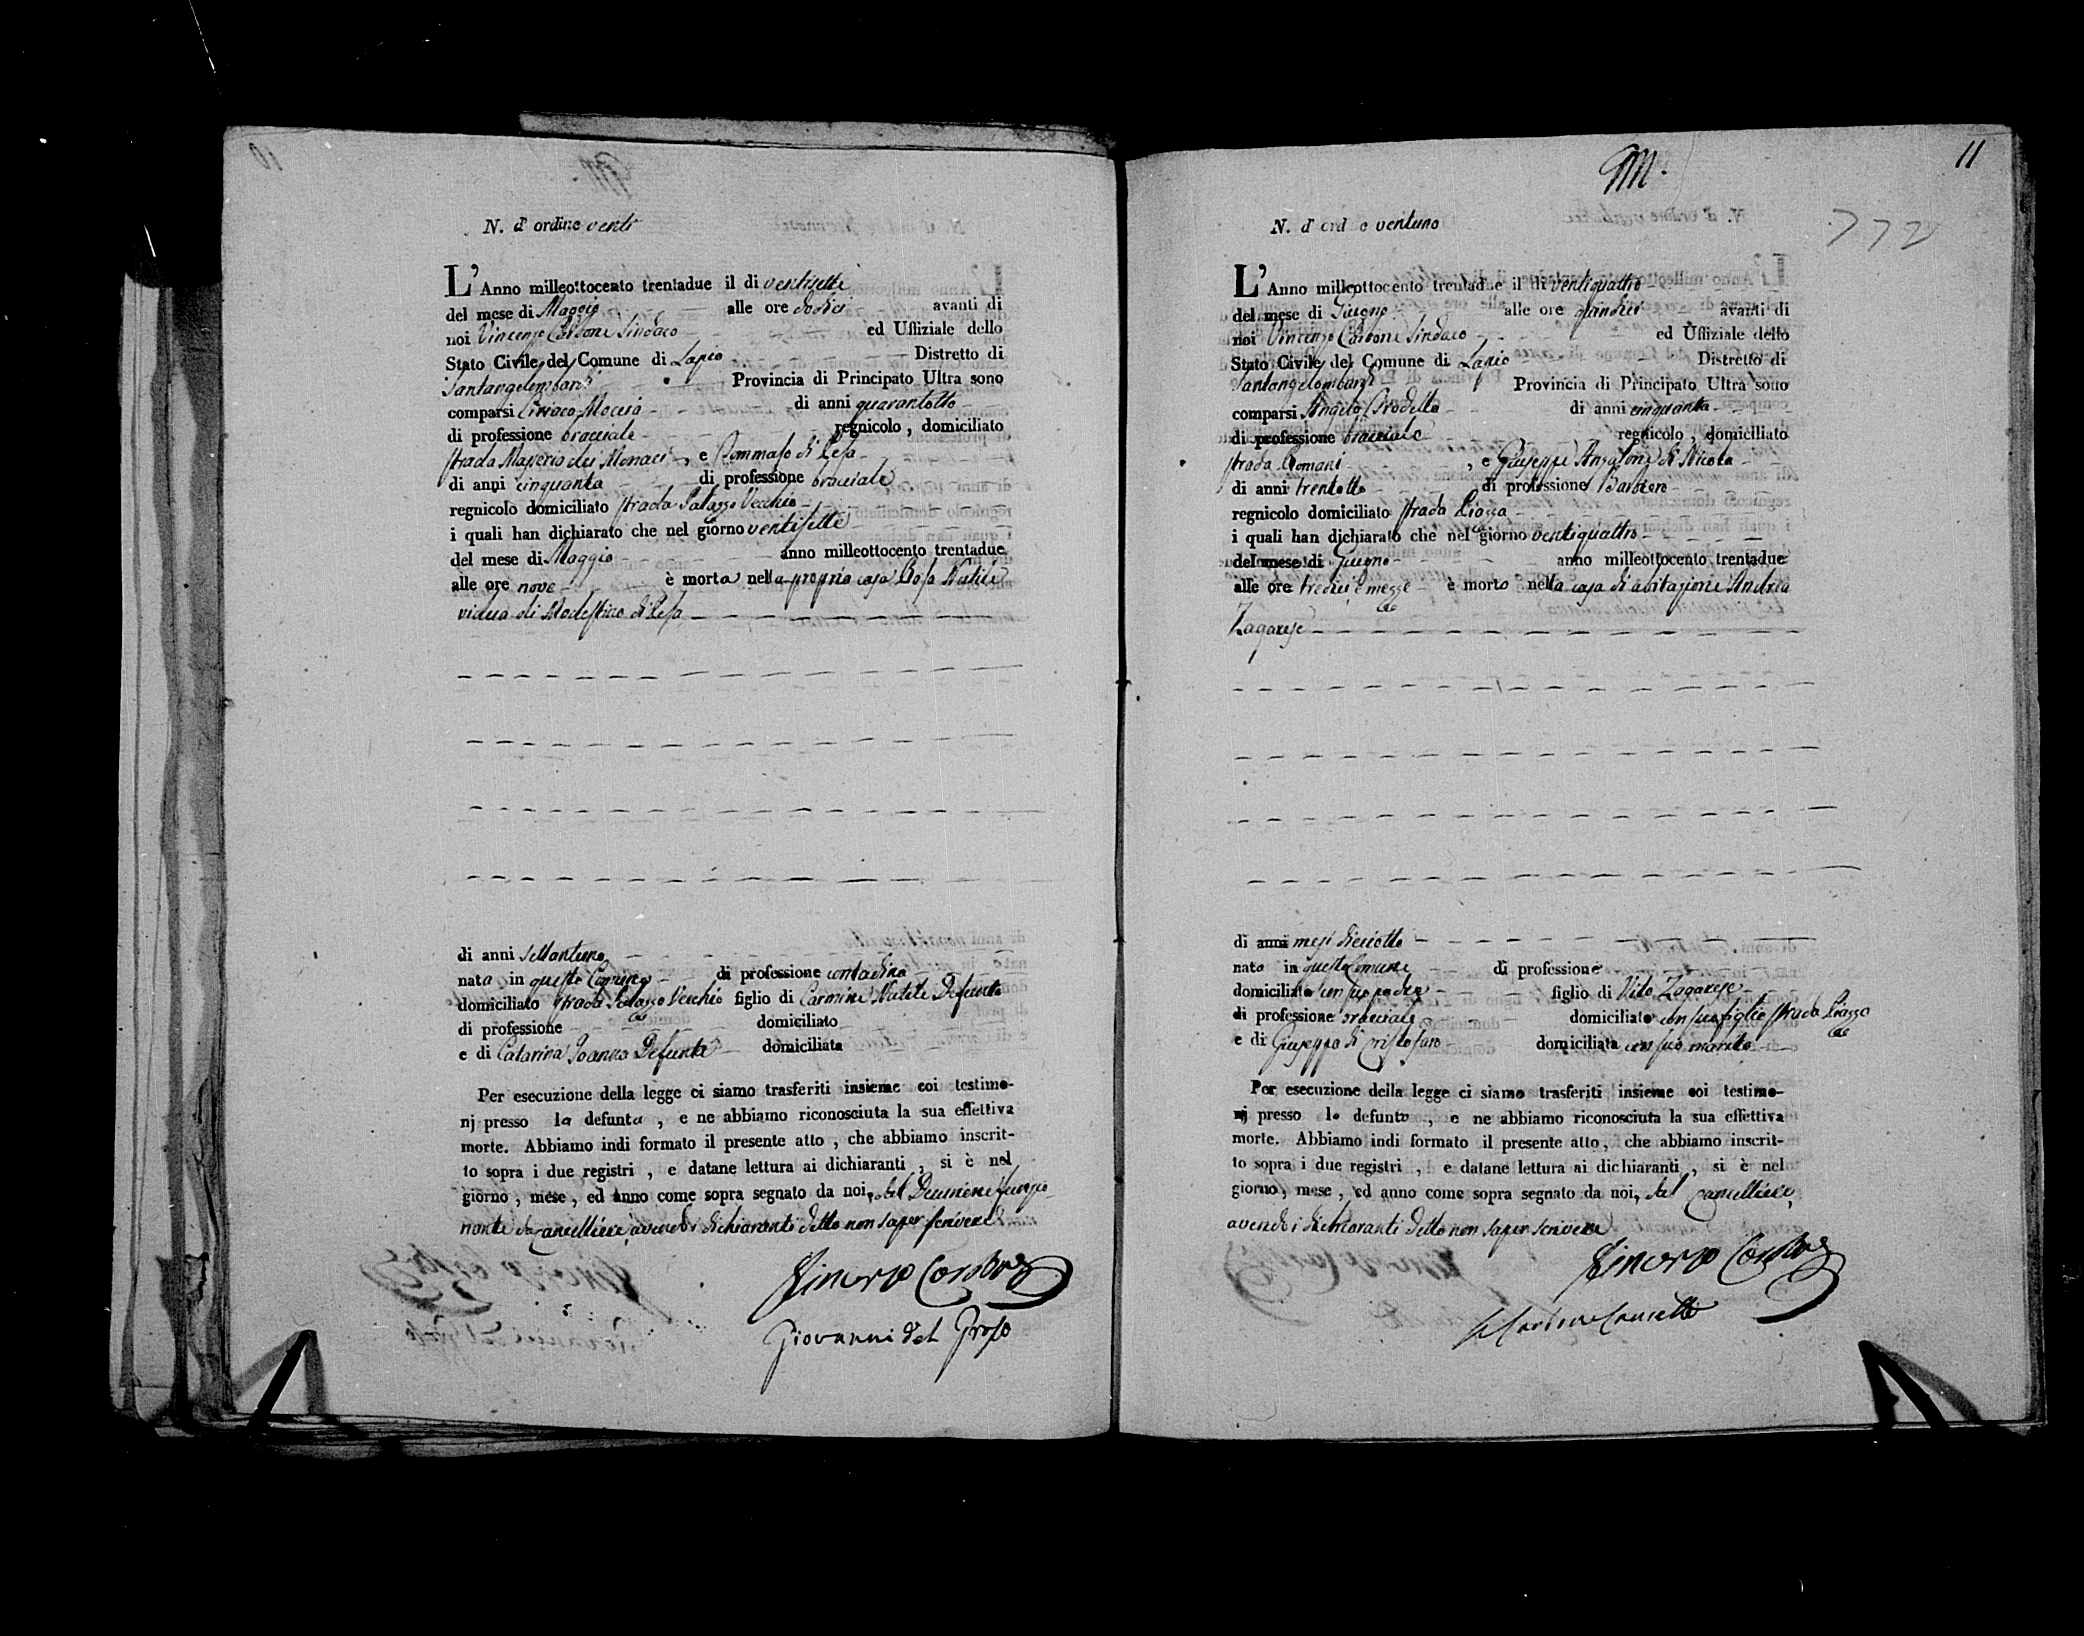 N. d'ordine venti
L'Anno milleottocento trentadue il di ventisette
del mese di Maggio alle ore dodici avanti di
noi Vincenzo Carbone Sindaco ed Uffiziale dello
Stato Civile del Comune di Lapio Distretto di
Santangelombardi Provincia di Principato Ultra sono
comparsi Ciriaco Moccia di anni quarantotto
di professione bracciale regnicolo, domiciliato
strada Masseria dei Monaci, e Tommaso di
di anni cinquanta di professione bracciale
regnicolo domiciliato strada Palazzo Vecchio
i quali han dichiarato che nel giorno ventisette
del mese di Maggio anno milleottocento trentadue
alle ore nove è morta nella propria casa Rosa
vidua di Modestino di
di anni settantuno
nata in questo Comune di professione contadina
domiciliato strada Palazzo Vecchio figlio di Carmine Defunto
di professione domiciliato
e di Catarina Joanna Defunta domiciliata
Per esecuzione della legge ci siamo trasferiti insieme coi testimo-
nj presso la defunta, e ne abbiamo riconosciuta la sua effettiva
morte. Abbiamo indi formato il presente atto, che abbiamo inscrit-
to sopra i due registri, e datane lettura ai dichiaranti, si è nel
giorno, mese, ed anno come sopra segnato da noi, dal Decurione funzio-
nante da Cancelliere, avendo i dichiaranti detto non saper scrivere
Vincenzo Carbone
Giovanni del Grosso
11
772
N. d'ord e ventuno
L'Anno milleottocento trentadue il di ventiquattro
del mese di Giugno alle ore quindici avanti di
noi Vincenzo Carbone Sindaco ed Uffiziale dello
Stato Civile del Comune di Lapio Distretto di
Santangelombardi Provincia di Principato Ultra sono
comparsi Angelo di anni cinquanta
di professione bracciale regnicolo, domiciliato
strada Romani, e Giuseppe Anzalone di Nicola
di anni trentotto di professione Barbiere
regnicolo domiciliato strada Piazza
i quali han dichiarato che nel giorno ventiquattro
del mese di Giugno anno milleottocento trentadue
alle ore tredici e mezze è morto nella casa di abitazione Andrea
Zagarese
di anni mesi dieciotto
nato in questo Comune di professione
domiciliato con suo padre figlio di Vito Zagarese
di professione bracciale domiciliato con suo figlio strada Piazza
e di Giuseppa di Cristofaro domiciliata con suo marito
Per esecuzione della legge ci siamo trasferiti insieme coi testimo-
nj presso lo defunto, e ne abbiamo riconosciuta la sua effettiva
morte. Abbiamo indi formato il presente atto, che abbiamo inscrit-
to sopra i due registri, e datane lettura ai dichiaranti, si è nel
giorno, mese, ed anno come sopra segnato da noi, dal Cancelliere,
avendo i dichiaranti detto non saper scrivere
Vincenzo Carbone